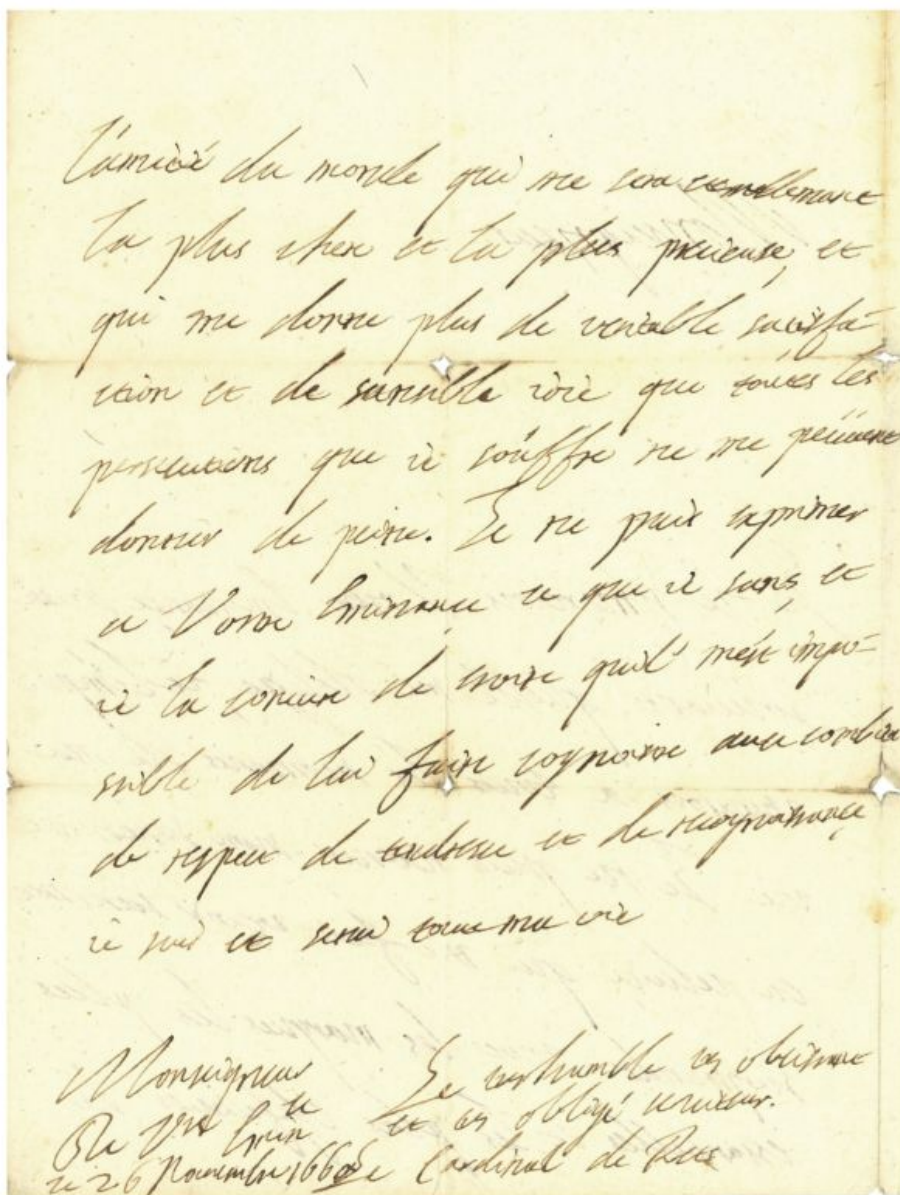 l'amitié du monde qui me sera eternellemant
la plus chere et la plus precieuse, et
qui me donne plus de veritable satisfa-
ction et de sansible ioïe que toutes les
persecutions que ie souffre ne me peuuent
donner de peine. Je ne puis exprimer
a Vostre Eminance ce que ie sans, et
ie la coniure de croire quil m'est impo-
ssible de lui faire cognoistre auec combien
de respect de tendresse et de recognoissance
ie suis et serai toute ma vie
Monseigneur
De Vre Emin ce
Le tres humble tres obeissant
et tres obligé seruiteur.
ce 26 Nouembre
Le Cardinal de Rets